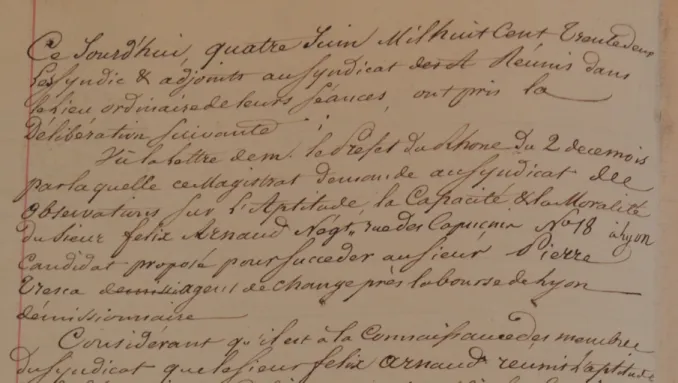 Ce Jourd'hui, quatre Juin Mil huit Cent Trente deux
Les Syndic & adjoints au Syndicat Réunis dans
le lieu ordinaire de leurs Séances, ont pris la
Délibération Suivante :
Vû la lettre de M. le Préfet du Rhône du 2 de ce mois
par laquelle ce Magistrat demande au Syndicat des
observations sur l'Aptitude, la Capacité & la Moralité
du Sieur felix Arnaud Négt., rue des Capucins No. 18 à Lyon
Candidat proposé pour succéder au Sieur Pierre
Tresca agent de change près la bourse de Lyon
démissionnaire
Considérant qu'il est à la Connaissance des membres
du Syndicat que le Sieur felix Arnaud réunit l'aptitude